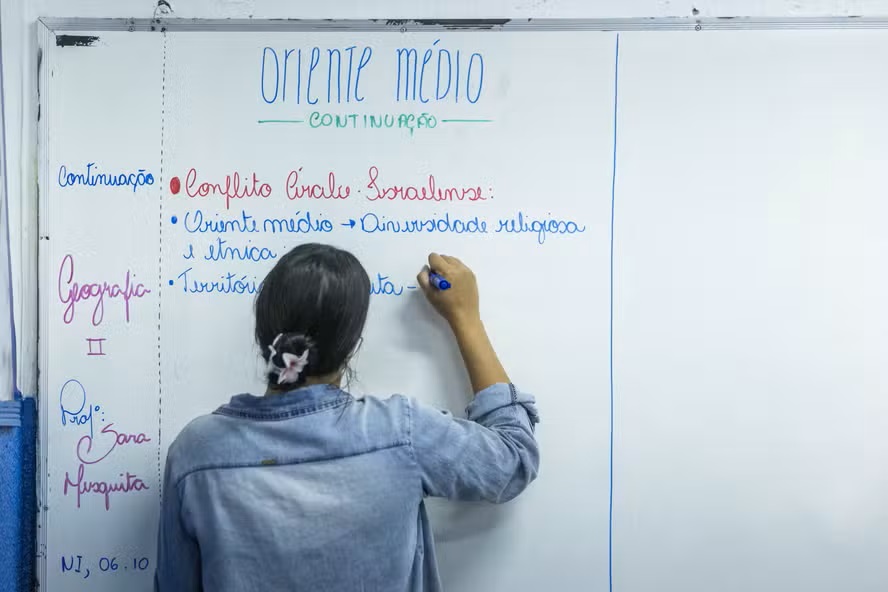 ORIENTE MÉDIO
CONTINUAÇÃO
Continuação
Geografia
II
Profª:
Sara
Mesquita
NI, 06.10
• Conflito Árabe-Israelense:
• Oriente médio → Diversidade religiosa
e etnica